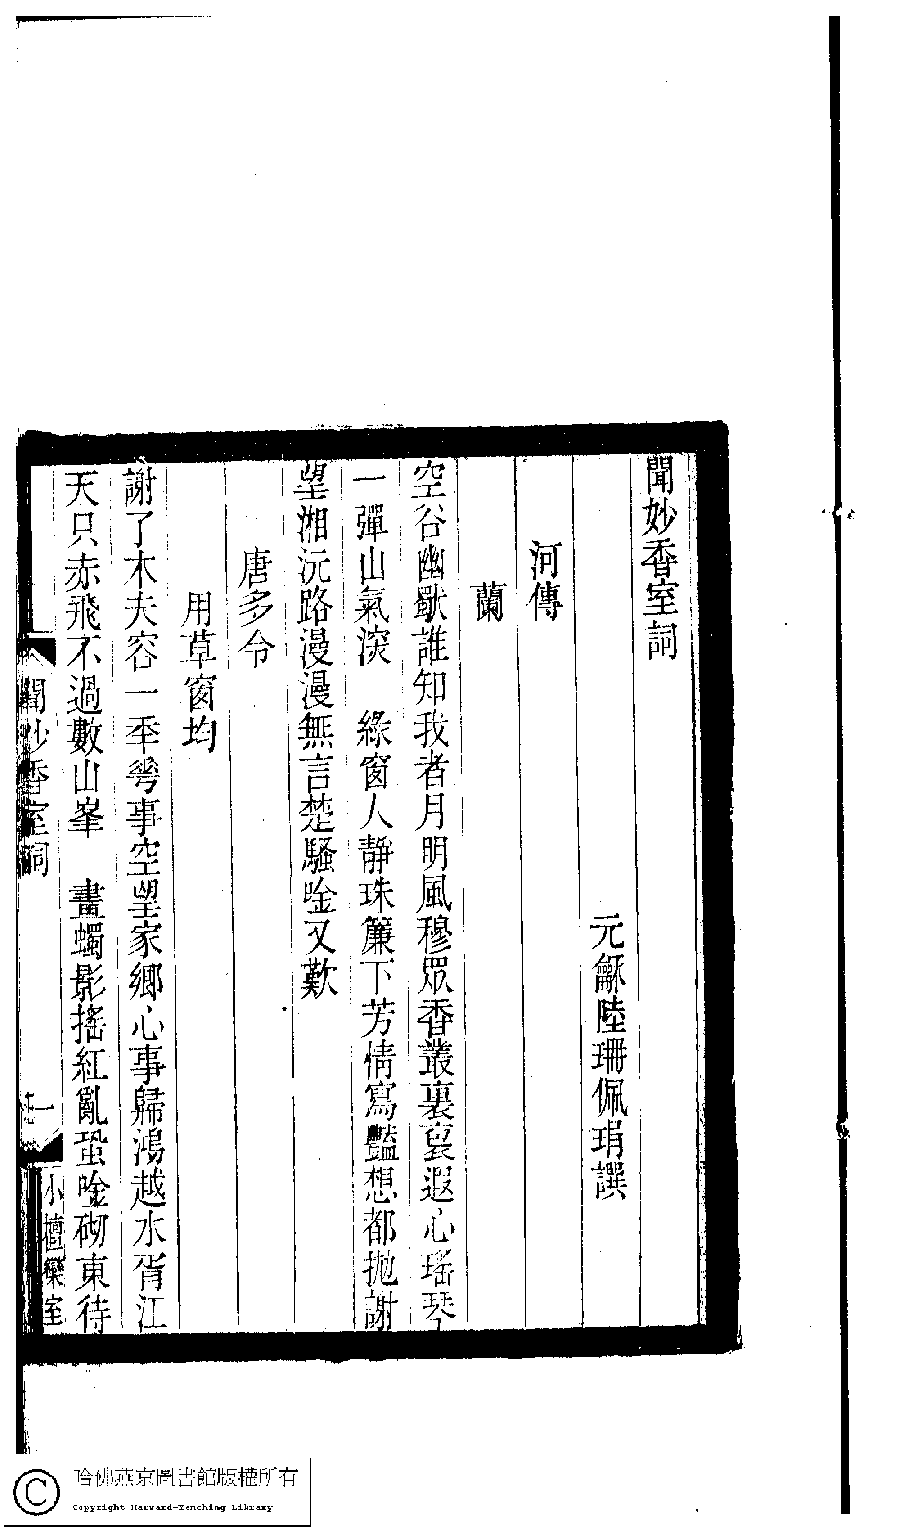 聞妙香室詞
元龢陸珊佩琄譔
河傳
蘭
空谷幽歇誰知我者月明風穆眾香叢裏裛遐心瑤琴
一彈山氣深　綠窗人靜珠簾下芳情寫豔想都拋謝
望湘沅路漫漫無言楚騷唫又歎
唐多令
用草窗均
謝了木夫容一秊㕦事空望家鄉心事歸鴻越水胥江
天只赤飛不過數山峯　畫蠋影搖紅亂蛩唫砌東待
聞妙香室詞
一
小檀欒室
哈佛燕京圖書館版權所有
Copyright Harvard-Yenching Library